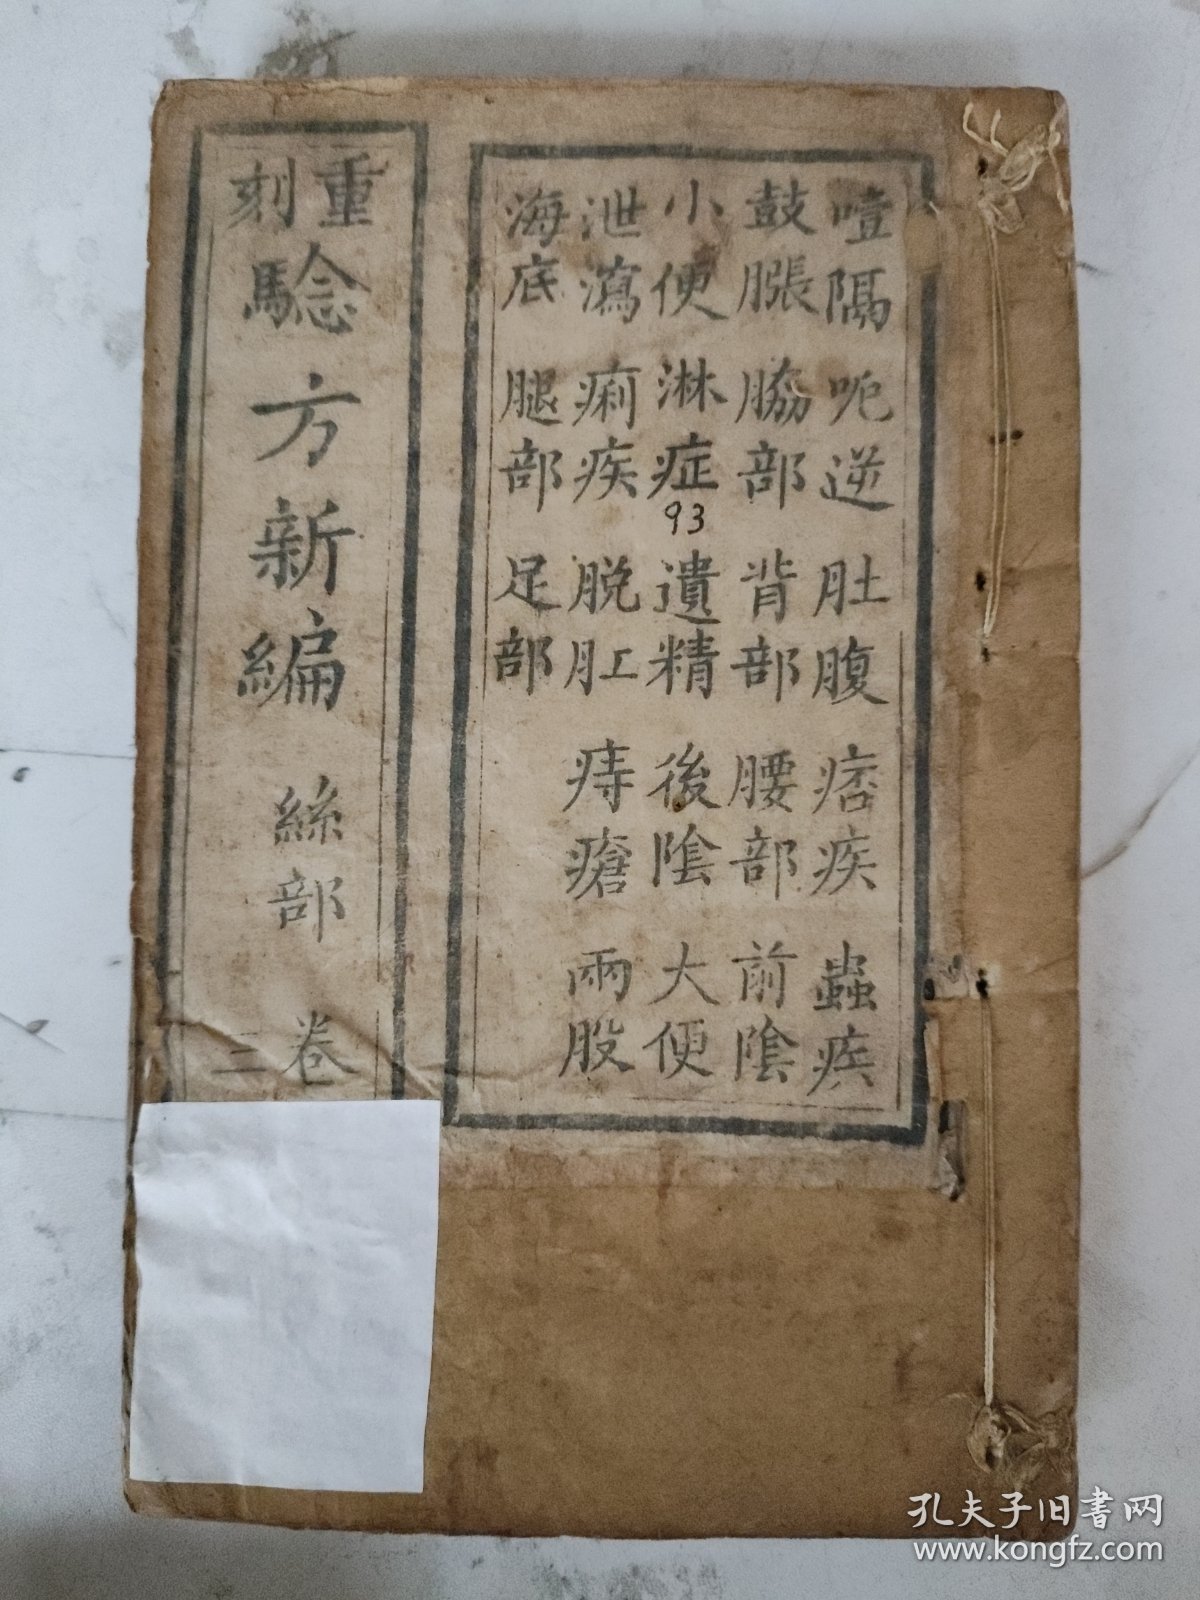 噎隔　呃逆　肚腹　痞疾　蟲疾
鼓脹　脇部　背部　腰部　前陰
小便　淋症　遺精　後陰　大便
93
泄瀉　痢疾　脫肛　痔瘡　兩股
海底　腿部　足部
重刻騐方新編　絲部　卷三
孔夫子旧书网
www.kongfz.com